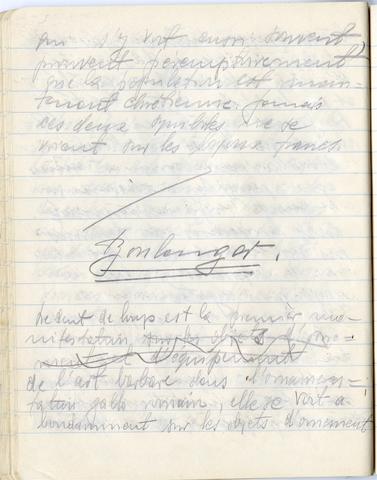 qui s'y voit aussi souvent
prouvent péremptoirement
que la population est main-
tenant chrétienne jamais
ces deux symboles ne se
voient sur les francs.
Boulanger.
La dent de loup est la première ma-
nifestation, sur les objets d'orne-
ment et d'équipement
de l'art barbare dans l'ornemen-
tation gallo romain, elle se voit a-
bondamment sur les objets d'ornement